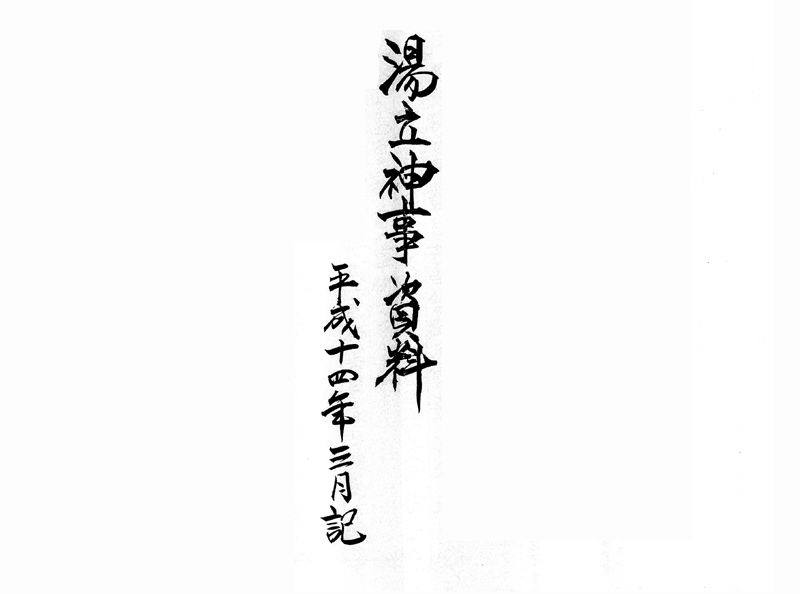 湯立神事資料
平成十四年三月記